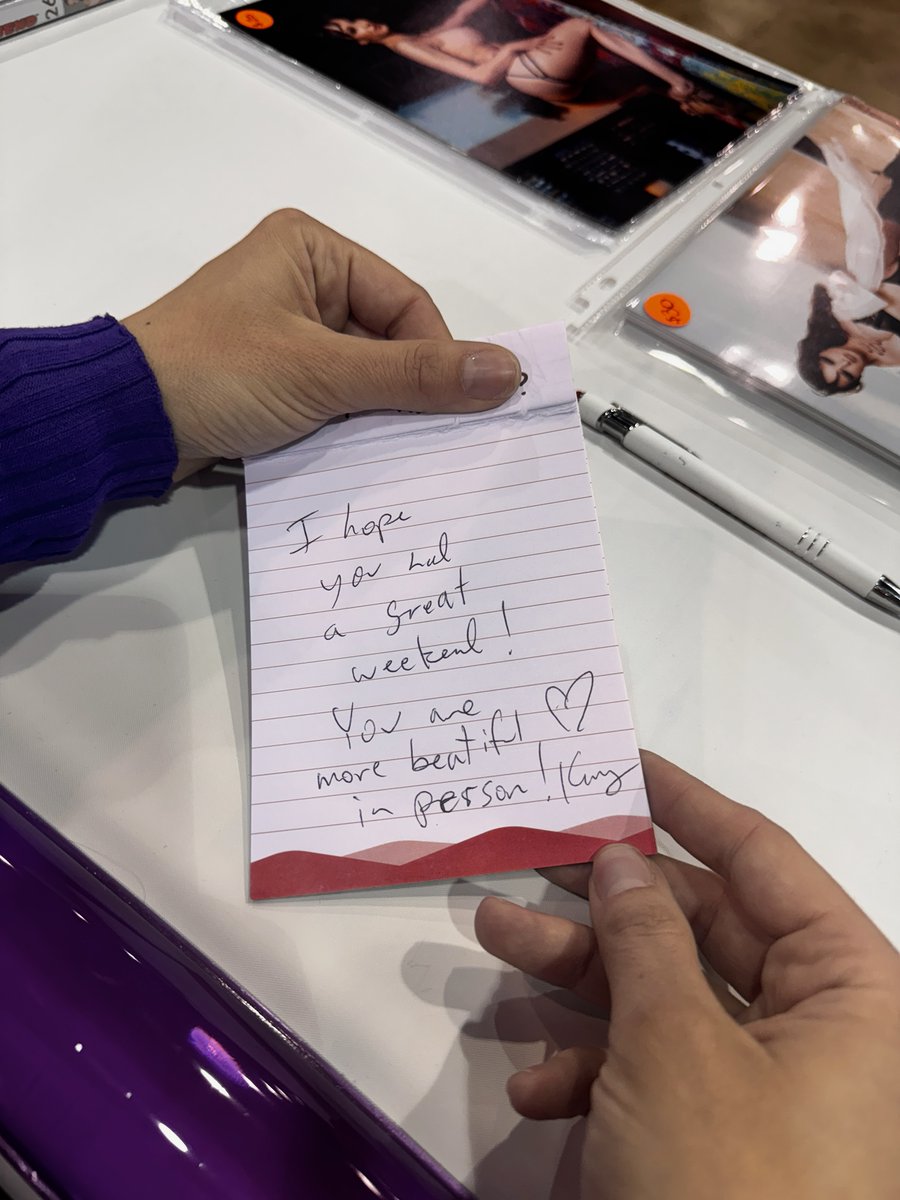 26
$30
?
I hope
you had
a great
weekend!
You are
more beatiful ♡
in person!